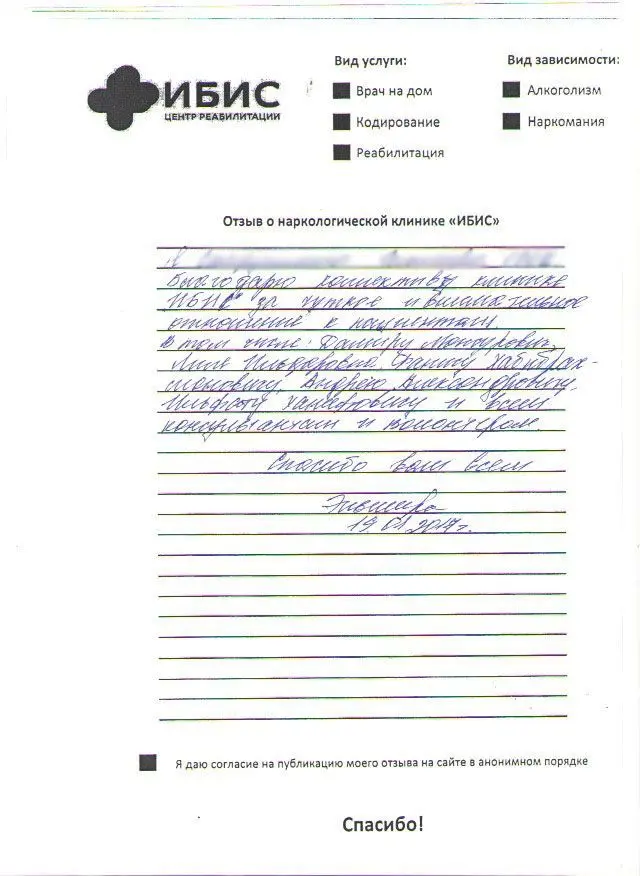 ИБИС
ЦЕНТР РЕАБИЛИТАЦИИ
Вид услуги:
Врач на дом
Кодирование
Реабилитация
Вид зависимости:
Алкоголизм
Наркомания
Отзыв о наркологической клинике «ИБИС»
Благодарю коллективу клинике
"ИБИС" за чуткое и внимательное
отношение к пациентам.
В том числе: Дамиру
Лиля Ильдаровна,
Андрею Александровичу,
и всем
консультантам и волонтером.
Спасибо вам всем
19.01.2017г.
Я даю согласие на публикацию моего отзыва на сайте в анонимном порядке
Спасибо!